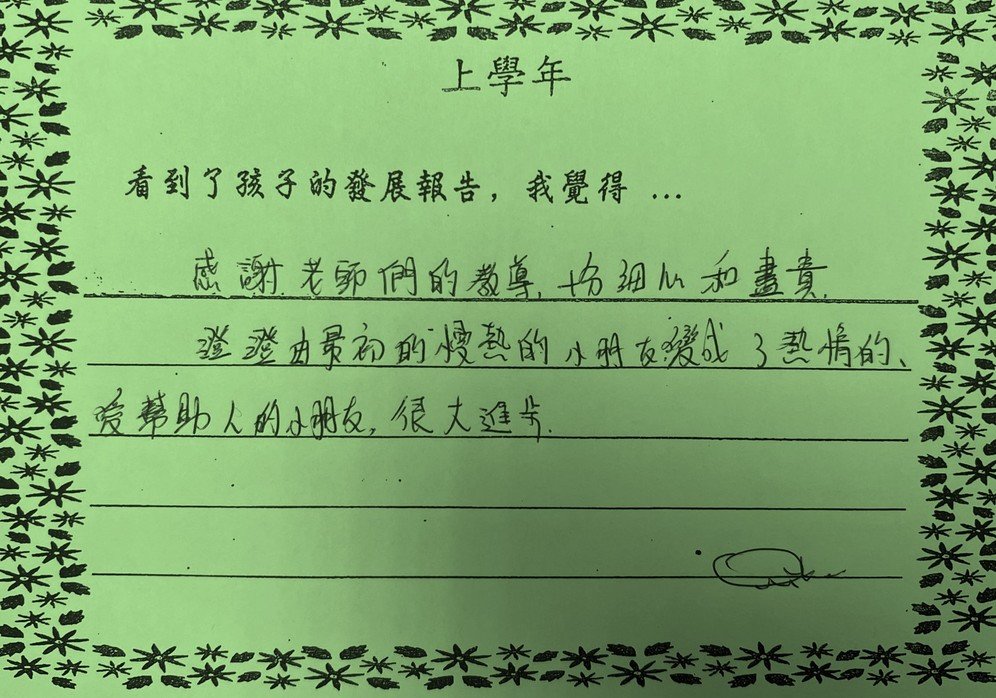 上學年
看到了孩子的發展報告，我覺得 ...
感謝老師們的教導，十份細心和盡責.
澄澄由最初的慢熱的小朋友變成了熱情的、
愛幫助人的小朋友, 很大進步.